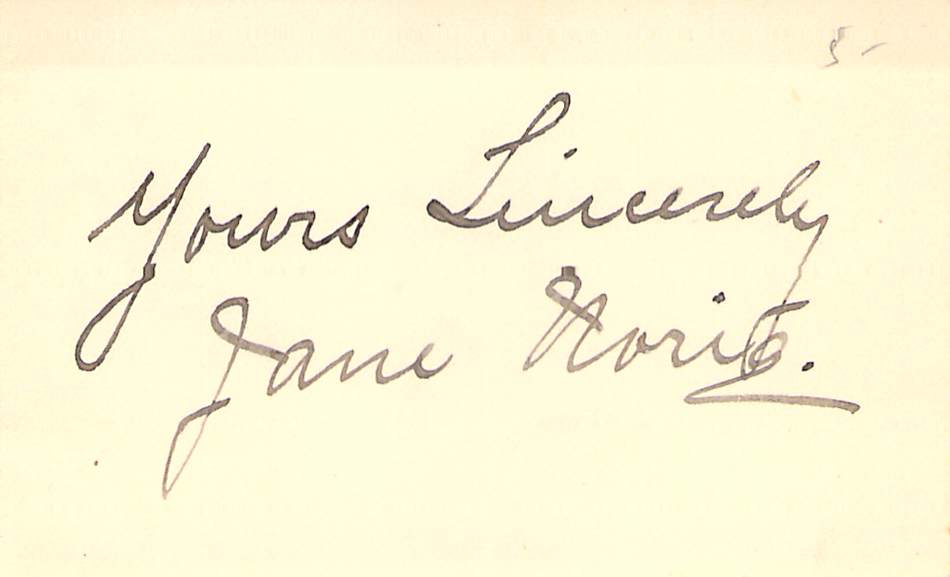 5-
Yours Sincerely
Jane Noria.